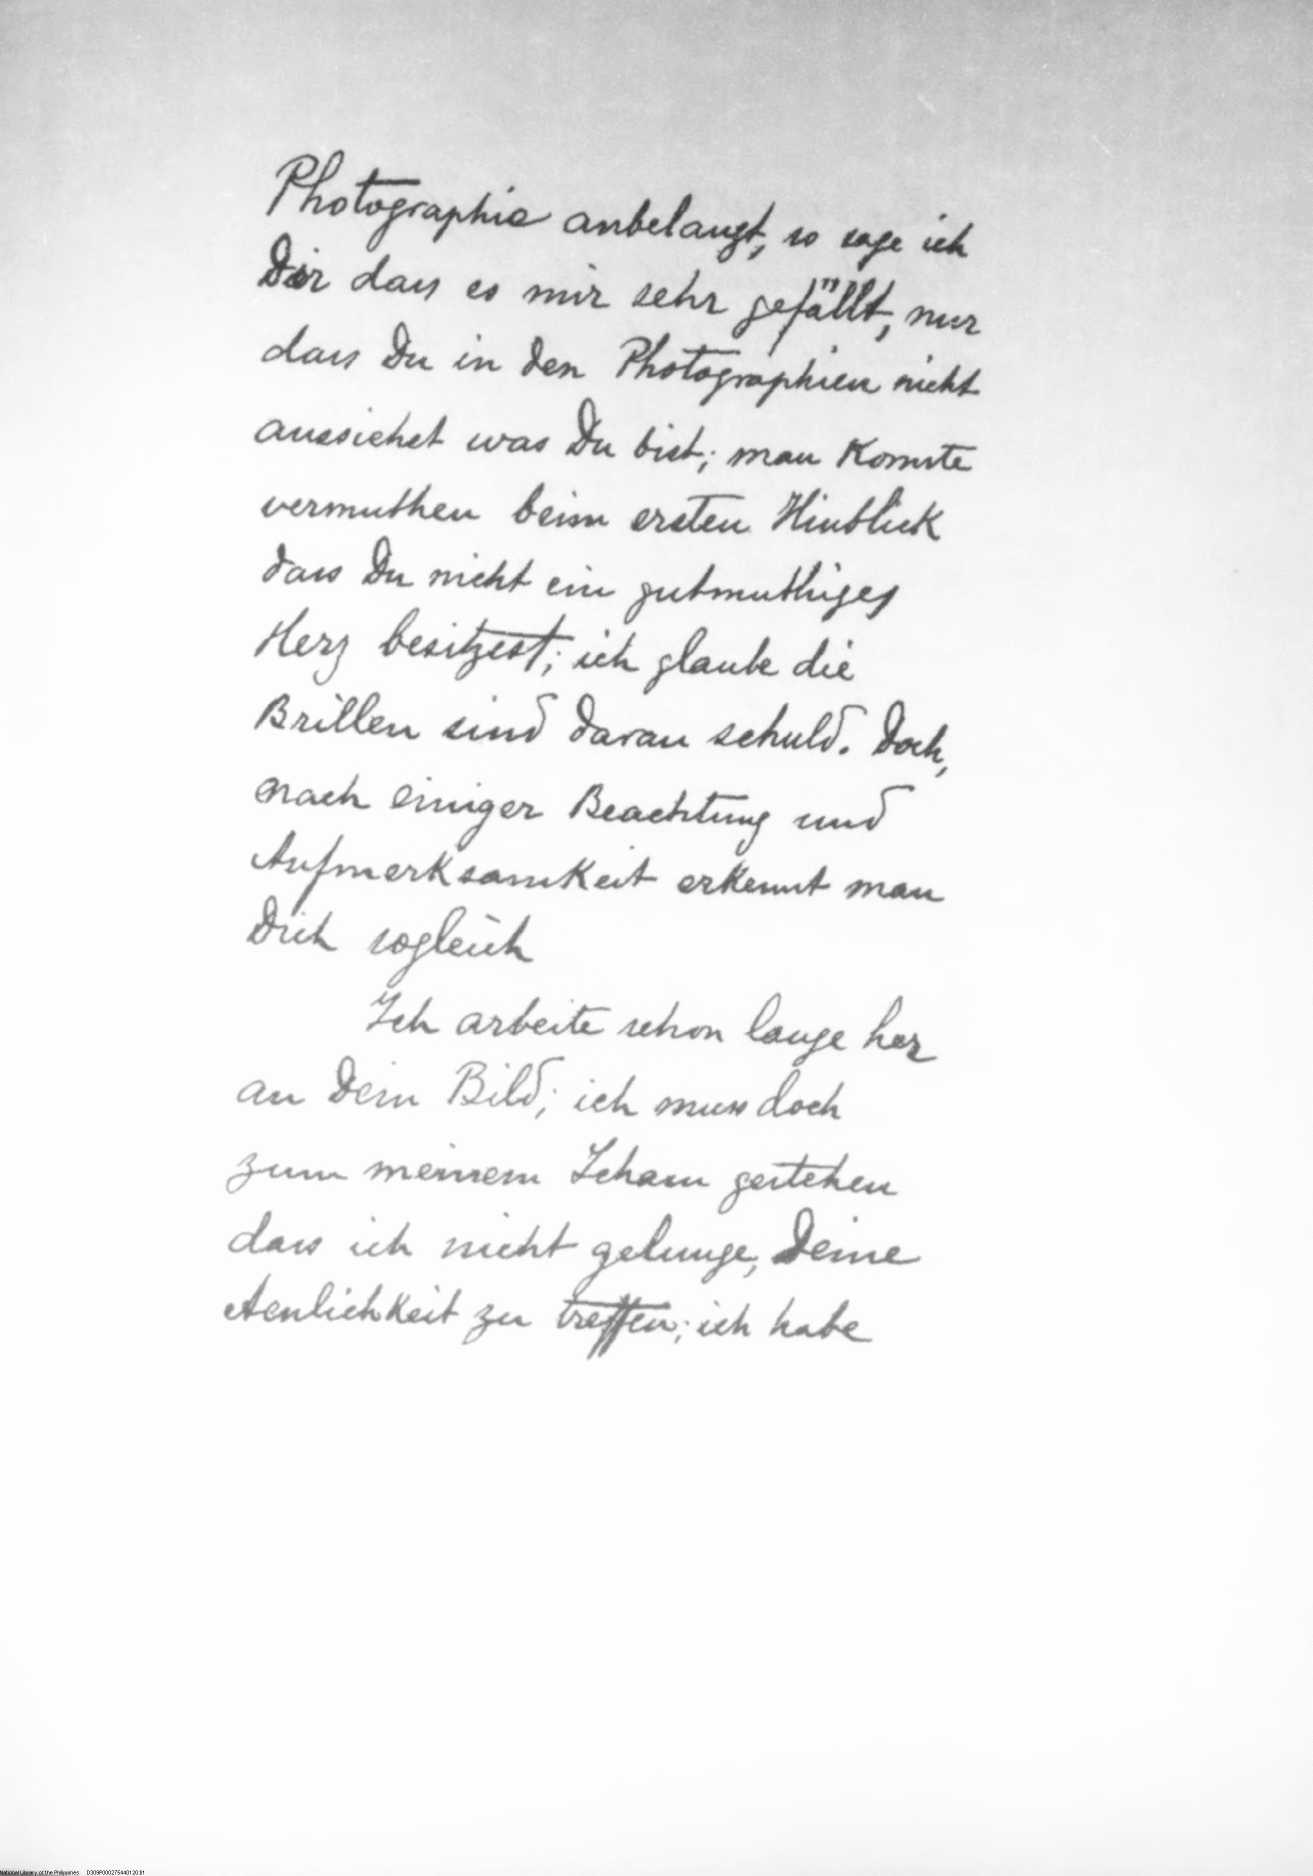 Photographie anbelangt, so sage ich
Dir dass es mir sehr gefällt, nur
dass Du in den Photographien nicht
aussiehst was Du bist; man konnte
vermuthen beim ersten Hinblick
dass Du nicht ein gutmuthiges
Herz besitzest; ich glaube die
Brillen sind daran schuld. Doch,
nach einiger Beachtung und
Aufmerksamkeit erkennt man
Dich sogleich
Ich arbeite schon lange her
an Dein Bild; ich muss doch
zum meinem Scham gestehen
dass ich nicht gelunge, Deine
Aenlichkeit zu treffen; ich habe
National Library of the Philippines